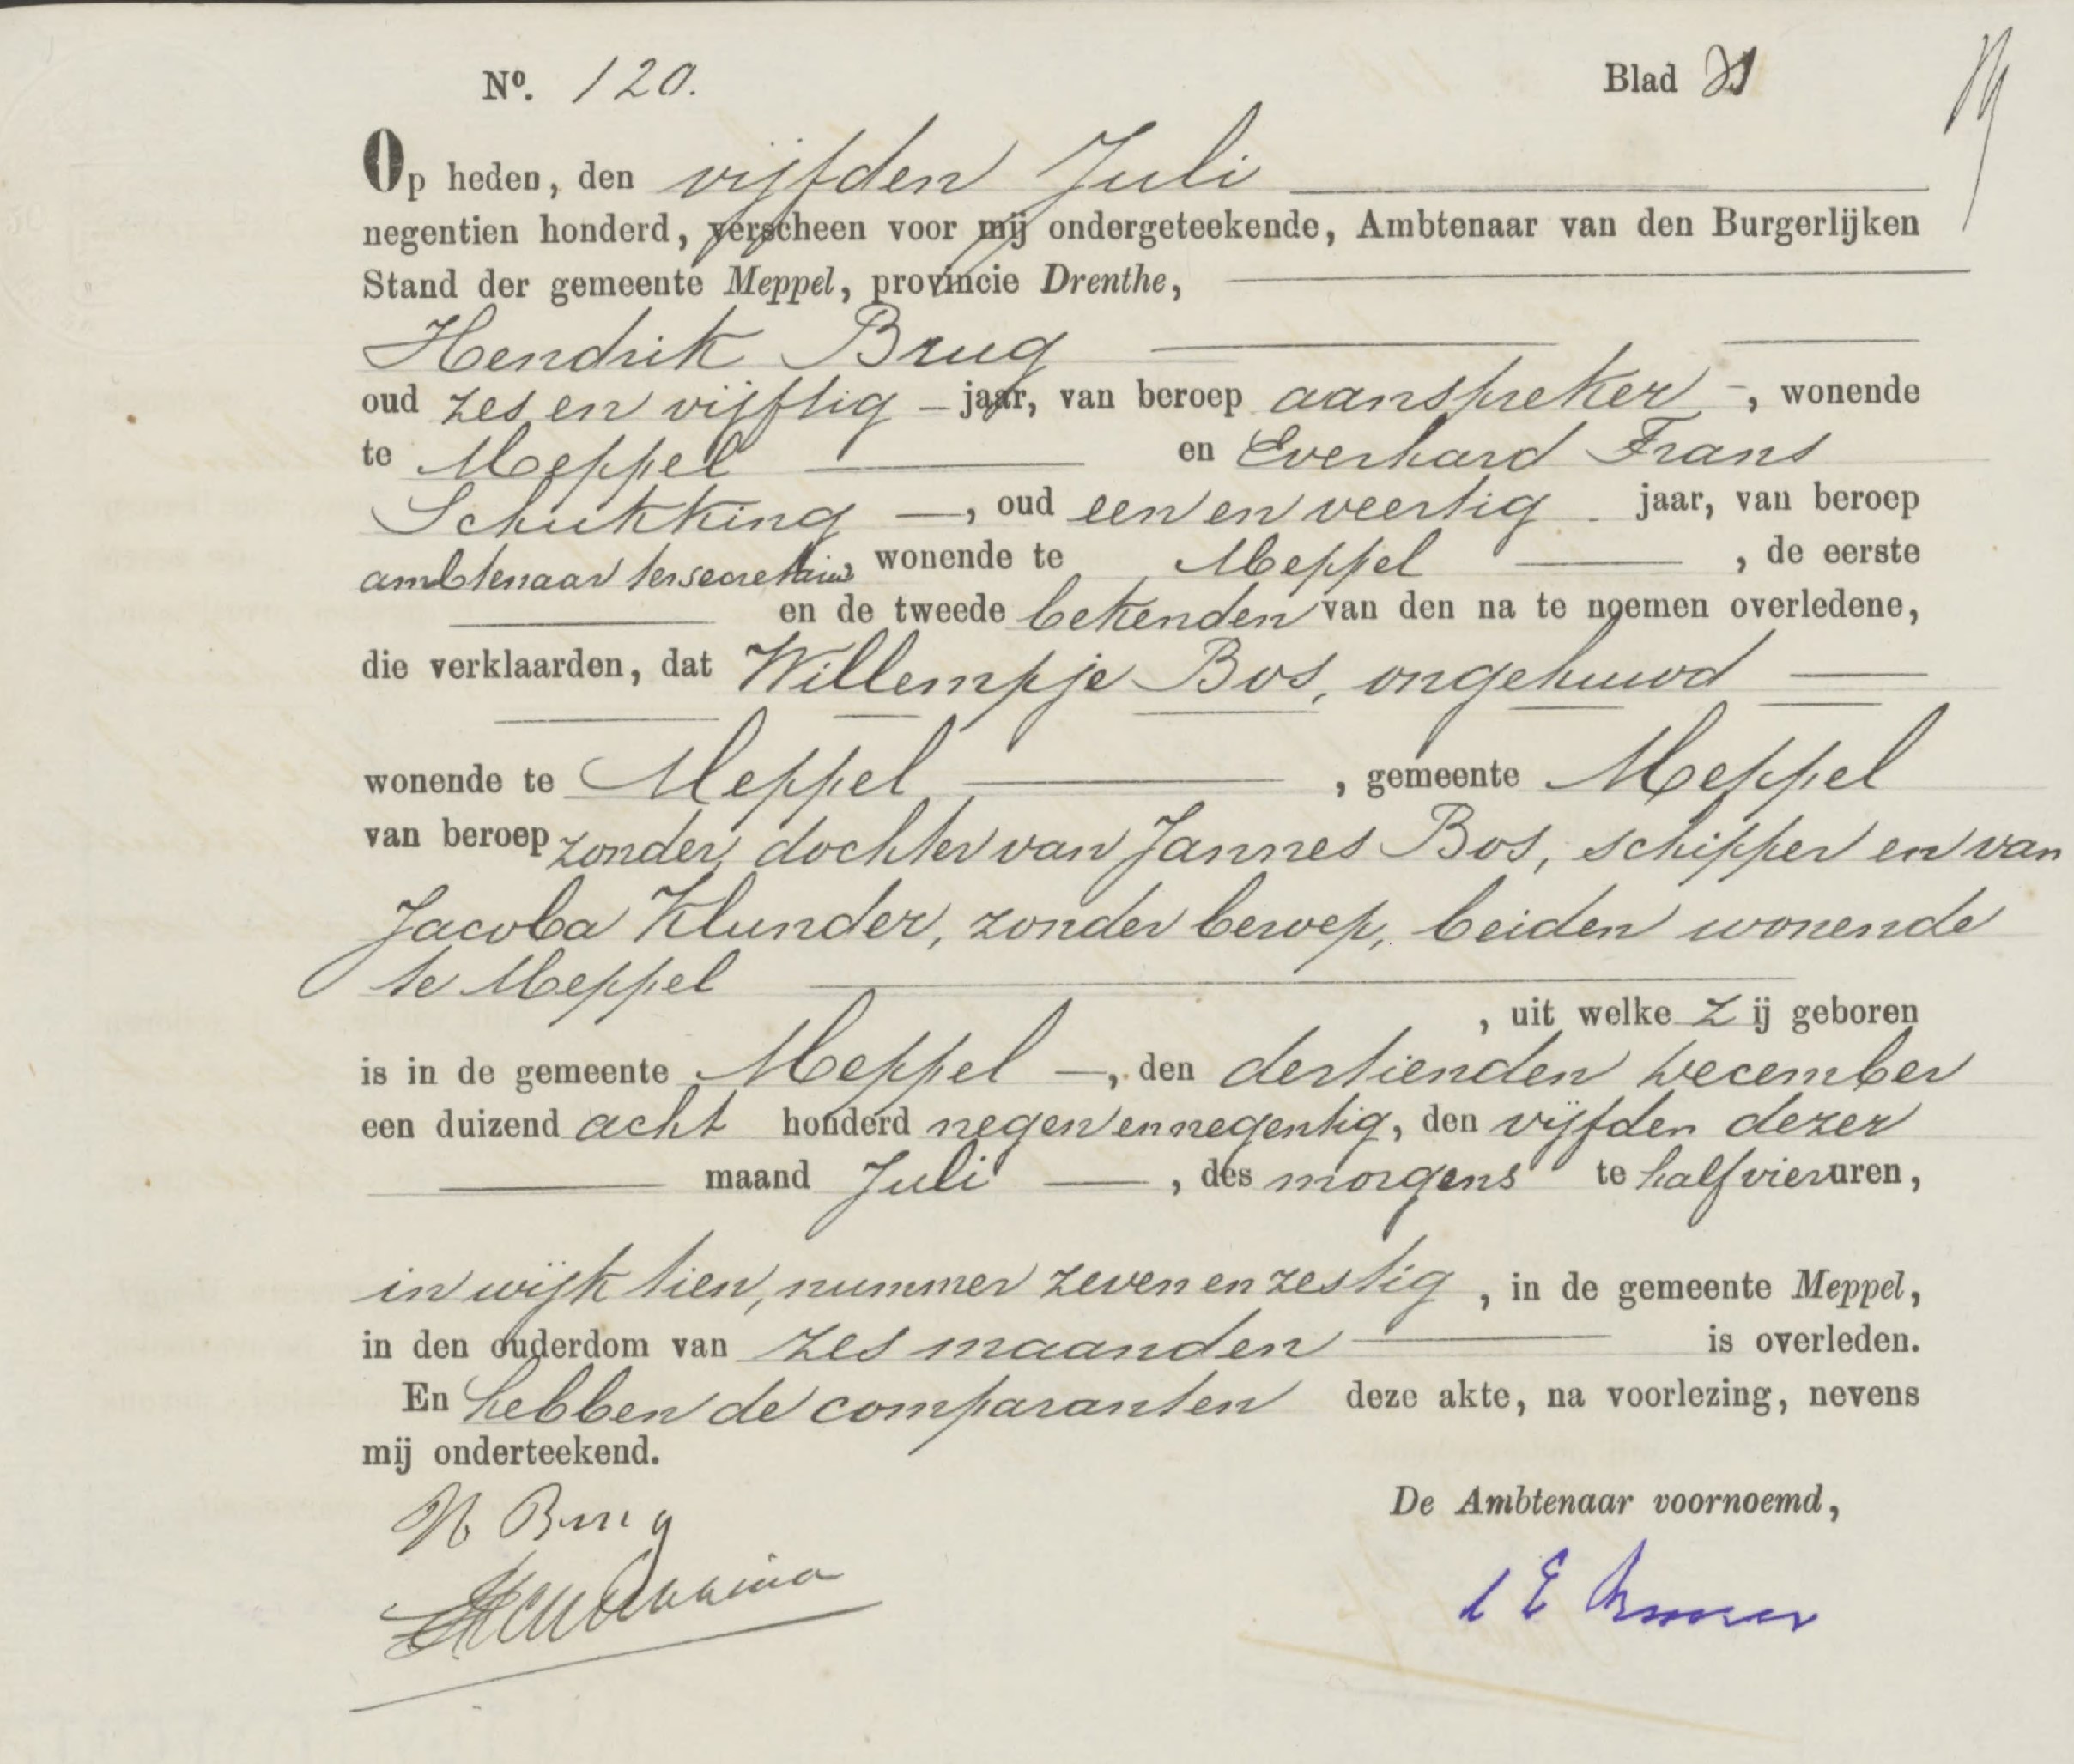 No. 120. Blad
Op heden, den vijfden Juli
negentien honderd, verscheen voor mij ondergeteekende, Ambtenaar van den Burgerlijken
Stand der gemeente Meppel, provincie Drenthe,
Hendrik Brug
oud zes en vijftig jaar, van beroep aanspreker, wonende
te Meppel en Everhard Frans
Schukking, oud een en veertig jaar, van beroep
ambtenaar ter secretarie wonende te Meppel, de eerste
en de tweede bekenden van den na te noemen overledene,
die verklaarden, dat Willempje Bos, ongehuwd
wonende te Meppel, gemeente Meppel
van beroep zonder, dochter van Jannes Bos, schipper en van
Jacoba Klunder, zonder beroep, beiden wonende
te Meppel
, uit welke zij geboren
is in de gemeente Meppel, den dertienden December
een duizend acht honderd negen en negentig, den vijfden dezer
maand Juli, des morgens te half vier uren,
in wijk tien, nummer zeven en zestig, in de gemeente Meppel,
in den ouderdom van zes maanden is overleden.
En hebben de comparanten deze akte, na voorlezing, nevens
mij onderteekend.
De Ambtenaar voornoemd,
H Brug